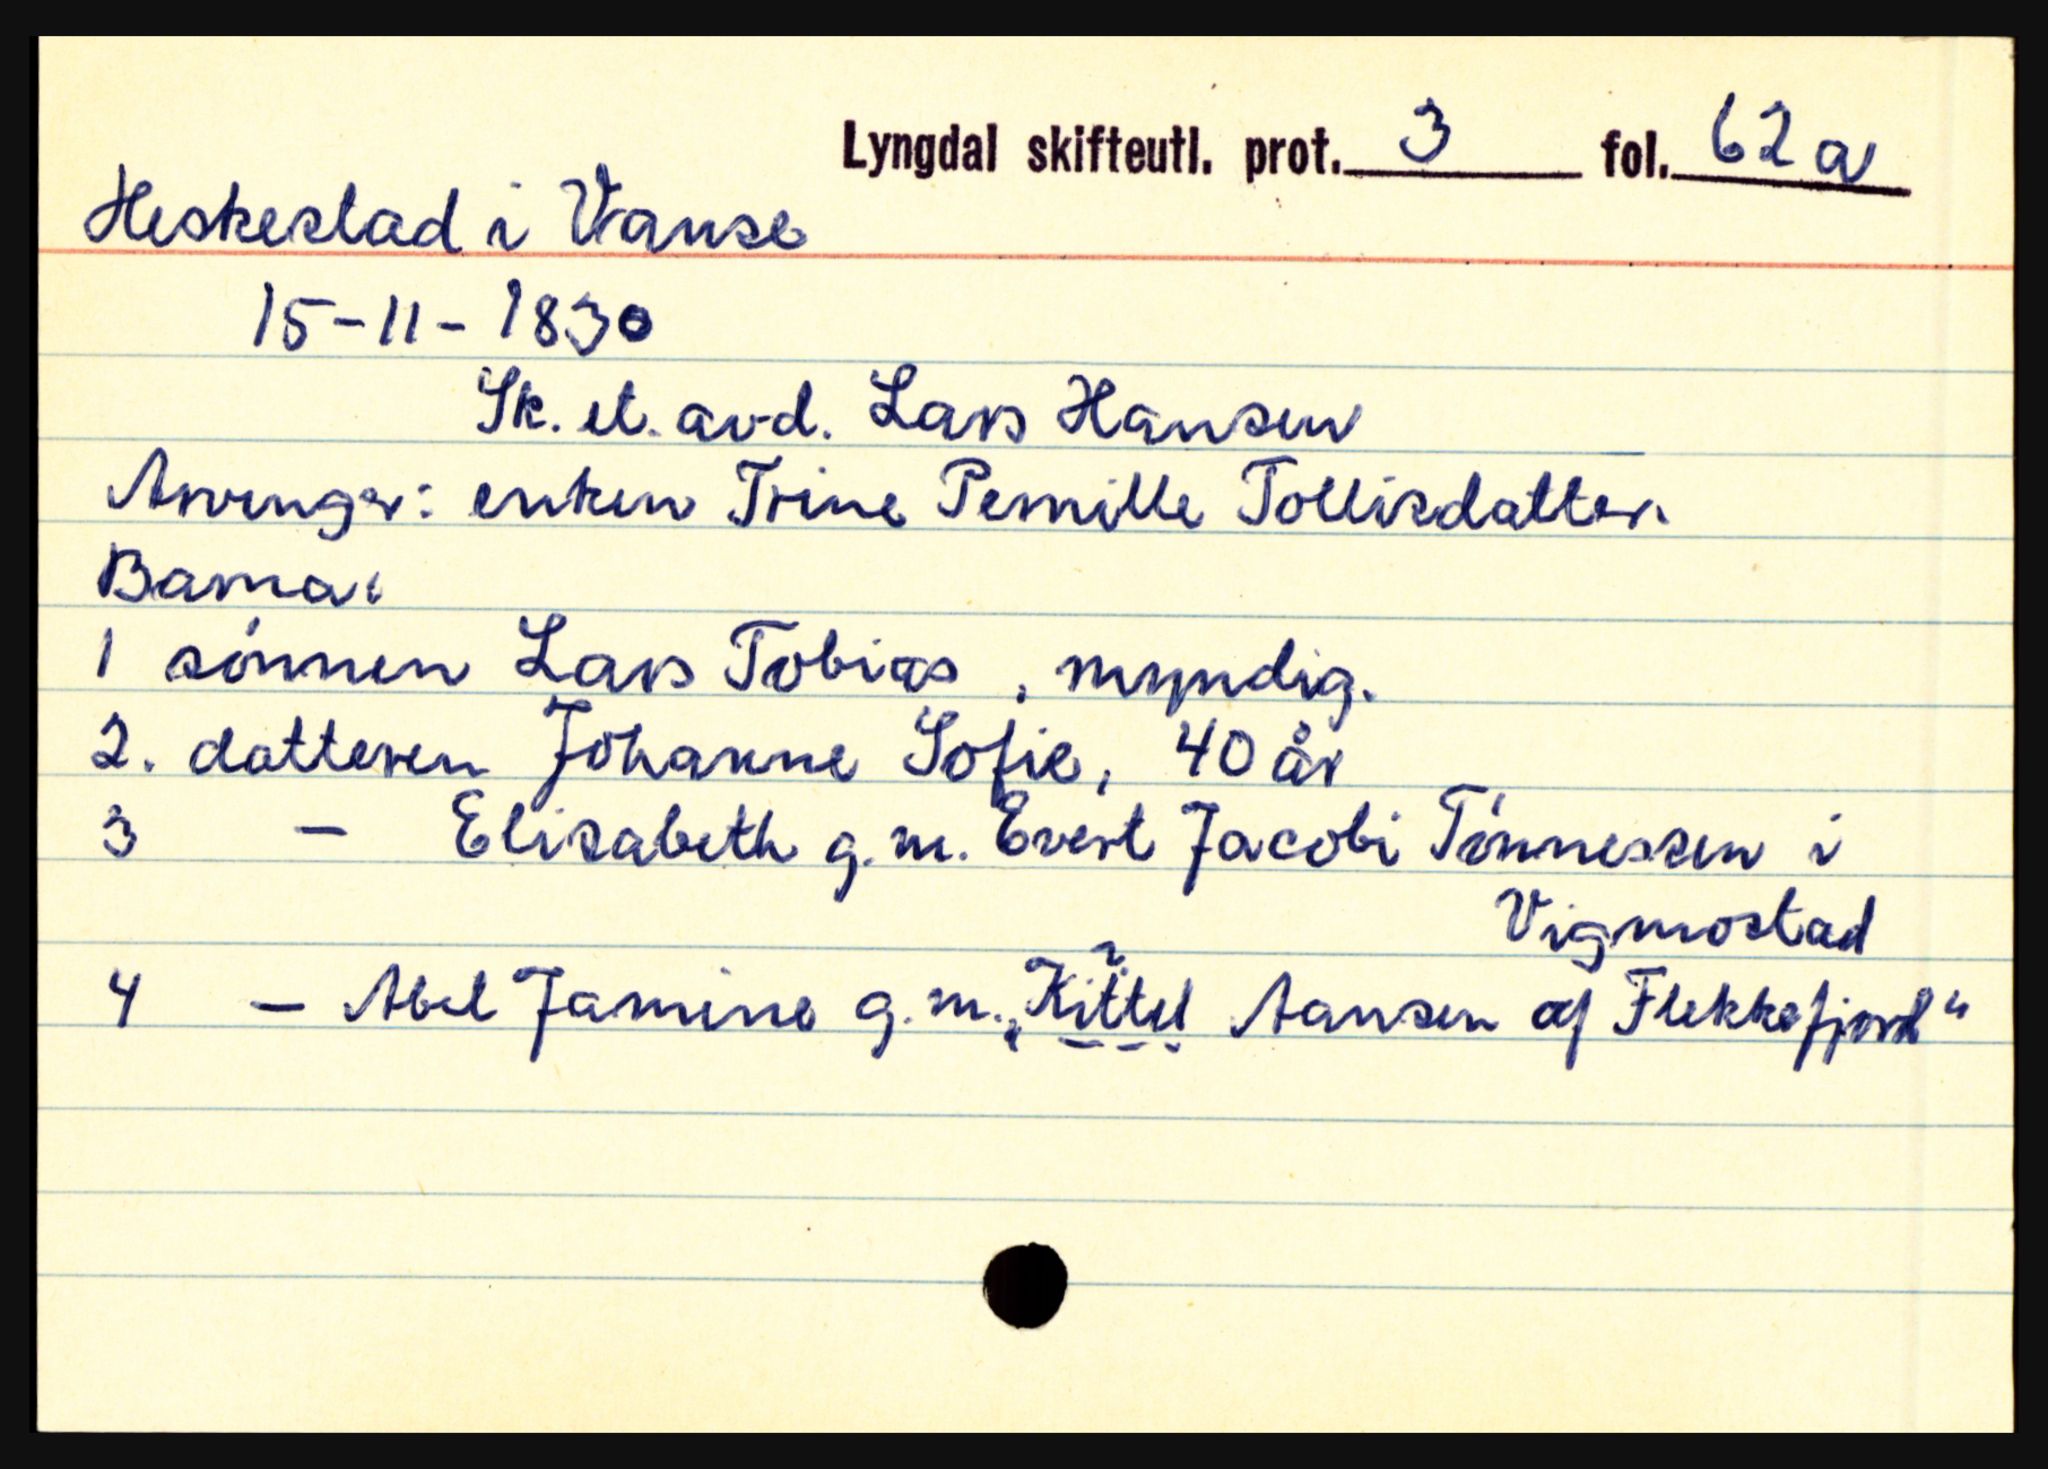 Lyngdal skifteutl. prot. 3 fol. 62a
Heskestad i Vanse
15-11-1830
Sk. et. avd. Lars Hansen
Arvinger: enken Trine Pernille Tollisdatter.
Barna:
1 sónnen Lars Tobias, myndig.
2. datteren Johanne Sofie, 40 år
3 — Elisabeth g.m. Evert Jacobi Tónnessen i
Vigmostad
?
4 — Abel Jamine g.m. „Kittel Aansen af Flekkefjord“